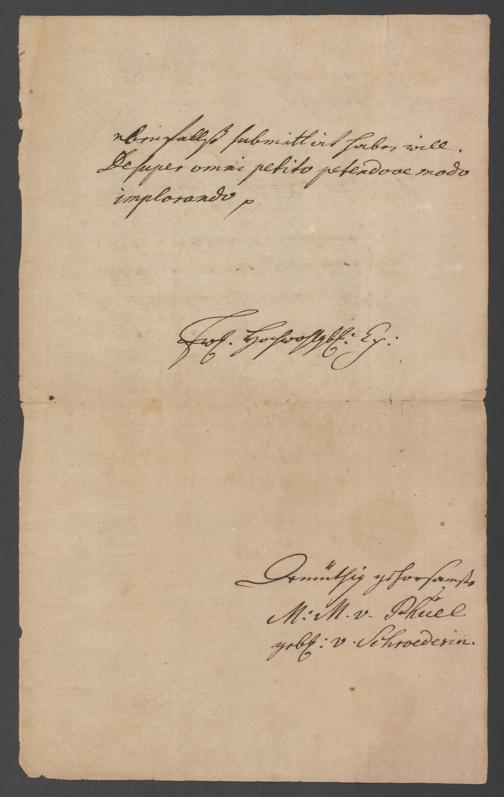 ebenfallß submittirt haben will.
Desuper omni petito petendove modo
implorando
Ew. Hochwohlgb. Ex:
Demüthig gehorsamste
M: M. v. Phüel
gebh: v. Schroederin.